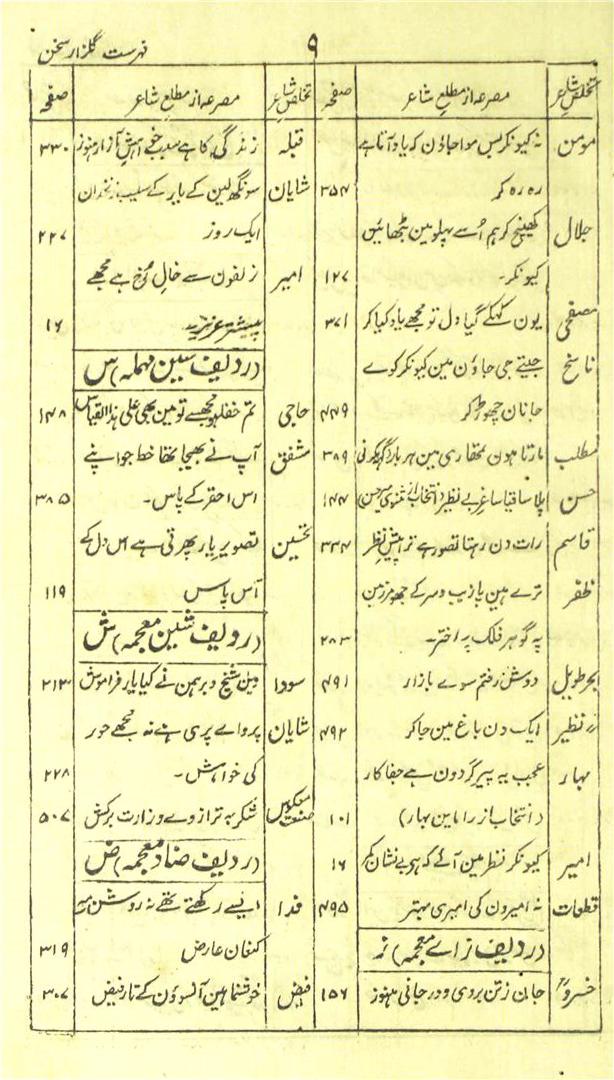 ۹
فہرست گلزار سخن
تخلص شاعر
مصرعہ از مطلع شاعر
صفحہ
مومن
نہ کیونکر بس مواجاؤن کہ یاد آتا ہے
رہ رہ کر
۳۵۴
جلال
کھینچ کر ہم اُسے پہلو مین بٹھائین
کیونکر۔
۱۲۷
مصحفی
یون کہکے گیا دل تو مجھے یاد کیا کر
۳۷۱
ناسخ
جیتے جی جاؤن مین کیونکر کوے
جانان چھوڑ کر
۴۴۹
مطلب
مارتا ہون کی
۳۸۹
حسن
پلا ساقیا ساغر بے نظیر (انتخاب از مثنوی میر حسن)
۱۴۴
قاسم
رات دن رہتا تصور ہے ترا پیش نظر
۳۳۴
ظفر
ترے ہین پازیب و سر کے جھومر زمین
پہ گوہر فلک پہ اختر۔
۲۸۳
بحر طویل
دوش رفتم سوے بازار
۴۹۱
نظیر
ایک دن باغ مین جا کر
۴۹۲
بہار
عجب یہ پیر گردون ہے جفا کار
(انتخاب از راماین بہار)
۱۰۱
امیر
کیونکر نظر مین آئے کہ ہو بے نشان کمر
۱۶
قطعات
نہ امیرون کی امیری بہتر
۴۹۵
(ردیف زاے معجمہ) ز
خسرو
جان ز تن بردی و در جانی ہنوز
۱۵۶
تخلص شاعر
مصرعہ از مطلع شاعر
صفحہ
قبلہ
زندگی کا ہے سبب خواہش آزار ہنوز
۳۳۰
شایان
سونگھ لین کے بابر کے سیب زنخدان
ایک روز
۲۲۷
امیر
زلفون سے خال رخ ہے مجھے
پیشتر عزیز
۱۶
(ردیف سین مہملہ) س
حاجی
تم خفا ہو مجھسے تو مین بھی علی ہذا القیاس
۱۴۸
مشفق
آپ نے بھیجا تھا خط جو اپنے
اس احقر کے پاس۔
۳۸۵
تحسین
تصویر یار پھرتی ہے اس دل کے
آس پاس
۱۱۹
(ردیف شین معجمہ) ش
سودا
دین شیخ و برہمن نے کیا یار فراموش
۲۱۳
شایان
پرواے پری ہے نہ مجھے حور
کی خواہش۔
۲۲۸
صنعت معکوس
شکر بہ ترازوے وزارت برکش
۵۰۷
(ردیف ضاد معجمہ) ض
فدا
ایسے رکھتے تھے نہ روشن
کنعان عارض
۳۱۹
فیض
خوشنما ہین آنسوؤن کے تار فیض
۳۰۷